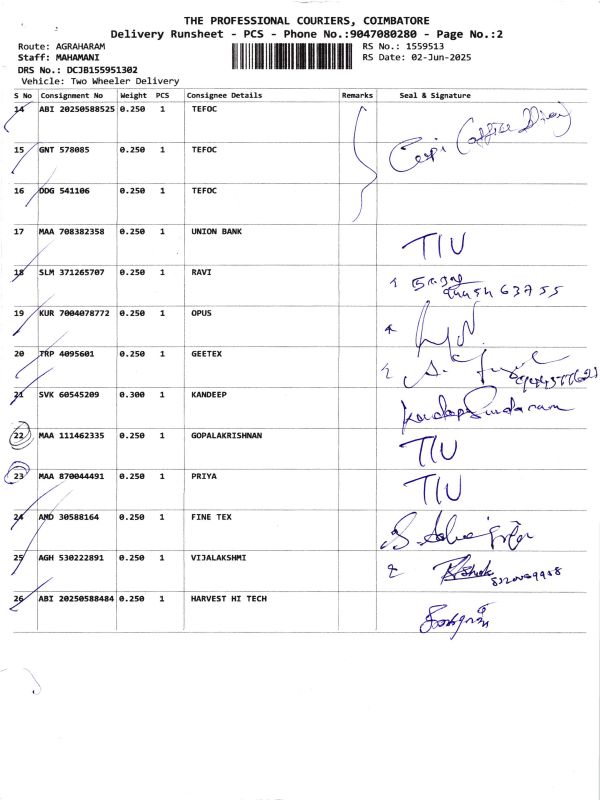 THE PROFESSIONAL COURIERS, COIMBATORE
Delivery Runsheet - PCS - Phone No.:9047080280 - Page No.:2
Route: AGRAHARAM RS No.: 1559513
Staff: MAHAMANI RS Date: 02-Jun-2025
DRS No.: DCJB155951302
Vehicle: Two Wheeler Delivery
S No Consignment No Weight PCS Consignee Details Remarks Seal & Signature
14 ABI 20250588525 0.250 1 TEFOC
15 GNT 578085 0.250 1 TEFOC
16 DDG 541106 0.250 1 TEFOC
17 MAA 708382358 0.250 1 UNION BANK TIU
18 SLM 371265707 0.250 1 RAVI
19 KUR 7004078772 0.250 1 OPUS
20 TRP 4095601 0.250 1 GEETEX
21 SVK 60545209 0.300 1 KANDEEP
22 MAA 111462335 0.250 1 GOPALAKRISHNAN TIU
23 MAA 870044491 0.250 1 PRIYA TIU
24 AMD 30588164 0.250 1 FINE TEX
25 AGH 530222891 0.250 1 VIJALAKSHMI
26 ABI 20250588484 0.250 1 HARVEST HI TECH